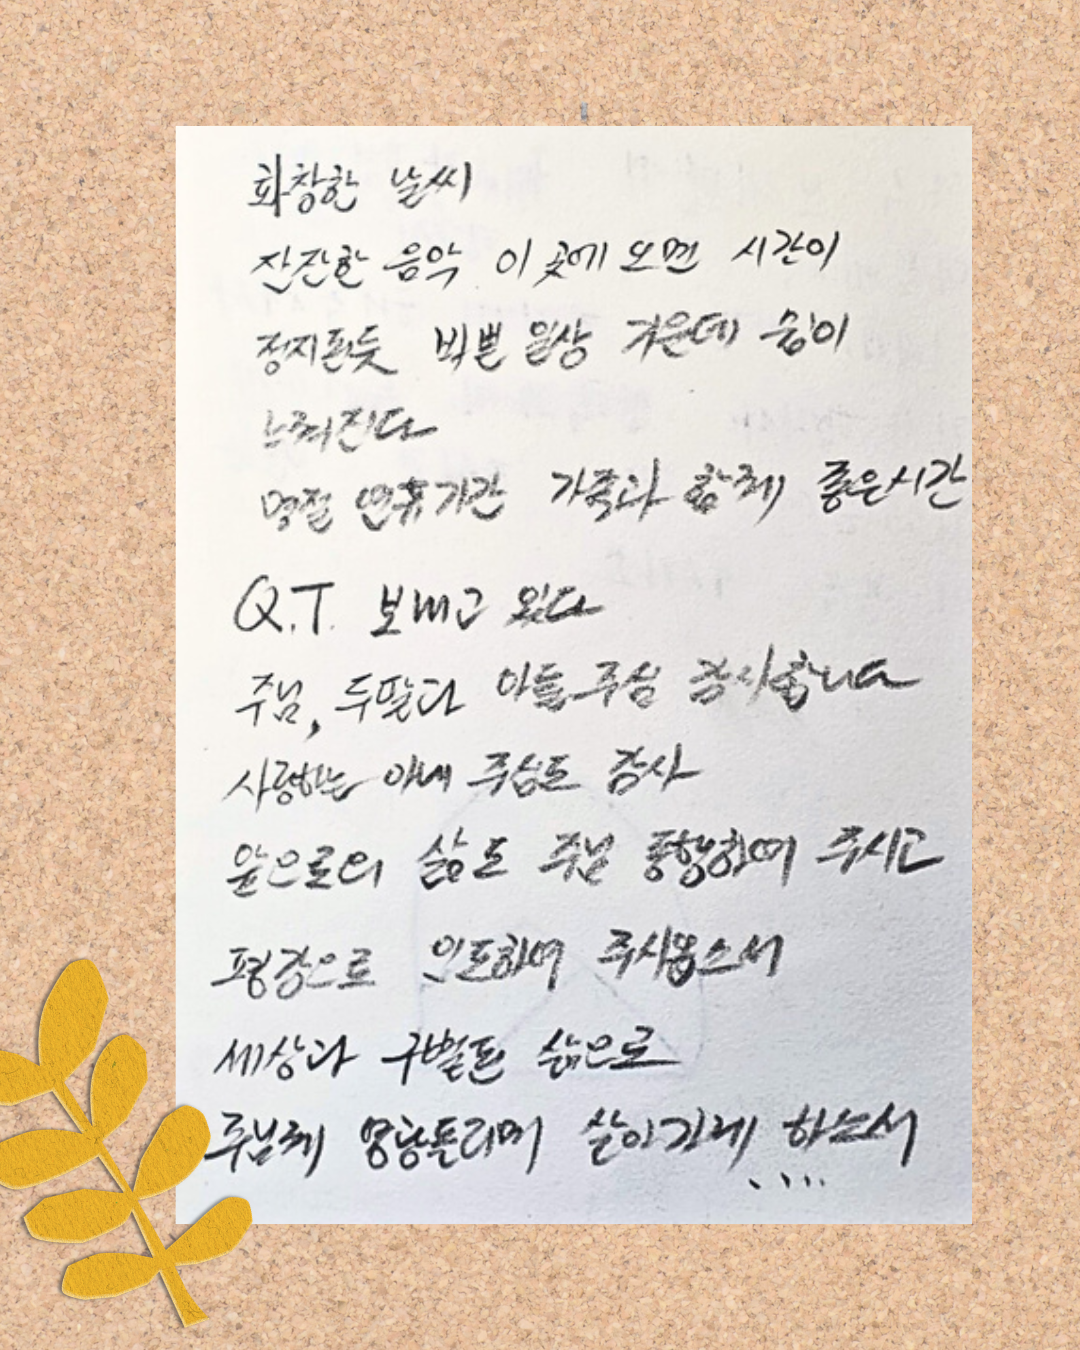 화창한 날씨
잔잔한 음악 이 곳에 오면 시간이
정지된듯 바쁜 일상 가운데 쉼이
느껴진다
명절 연휴기간 가족과 함께 좋은시간
Q.T. 보내고 있다
주님, 두딸과 아들 주심 감사합니다
사랑하는 아내 주심도 감사
앞으로의 삶도 주님 동행하여 주시고
평강으로 인도하여 주시옵소서
세상과 구별된 삶으로
주님께 영광돌리며 살아가게 하소서
....